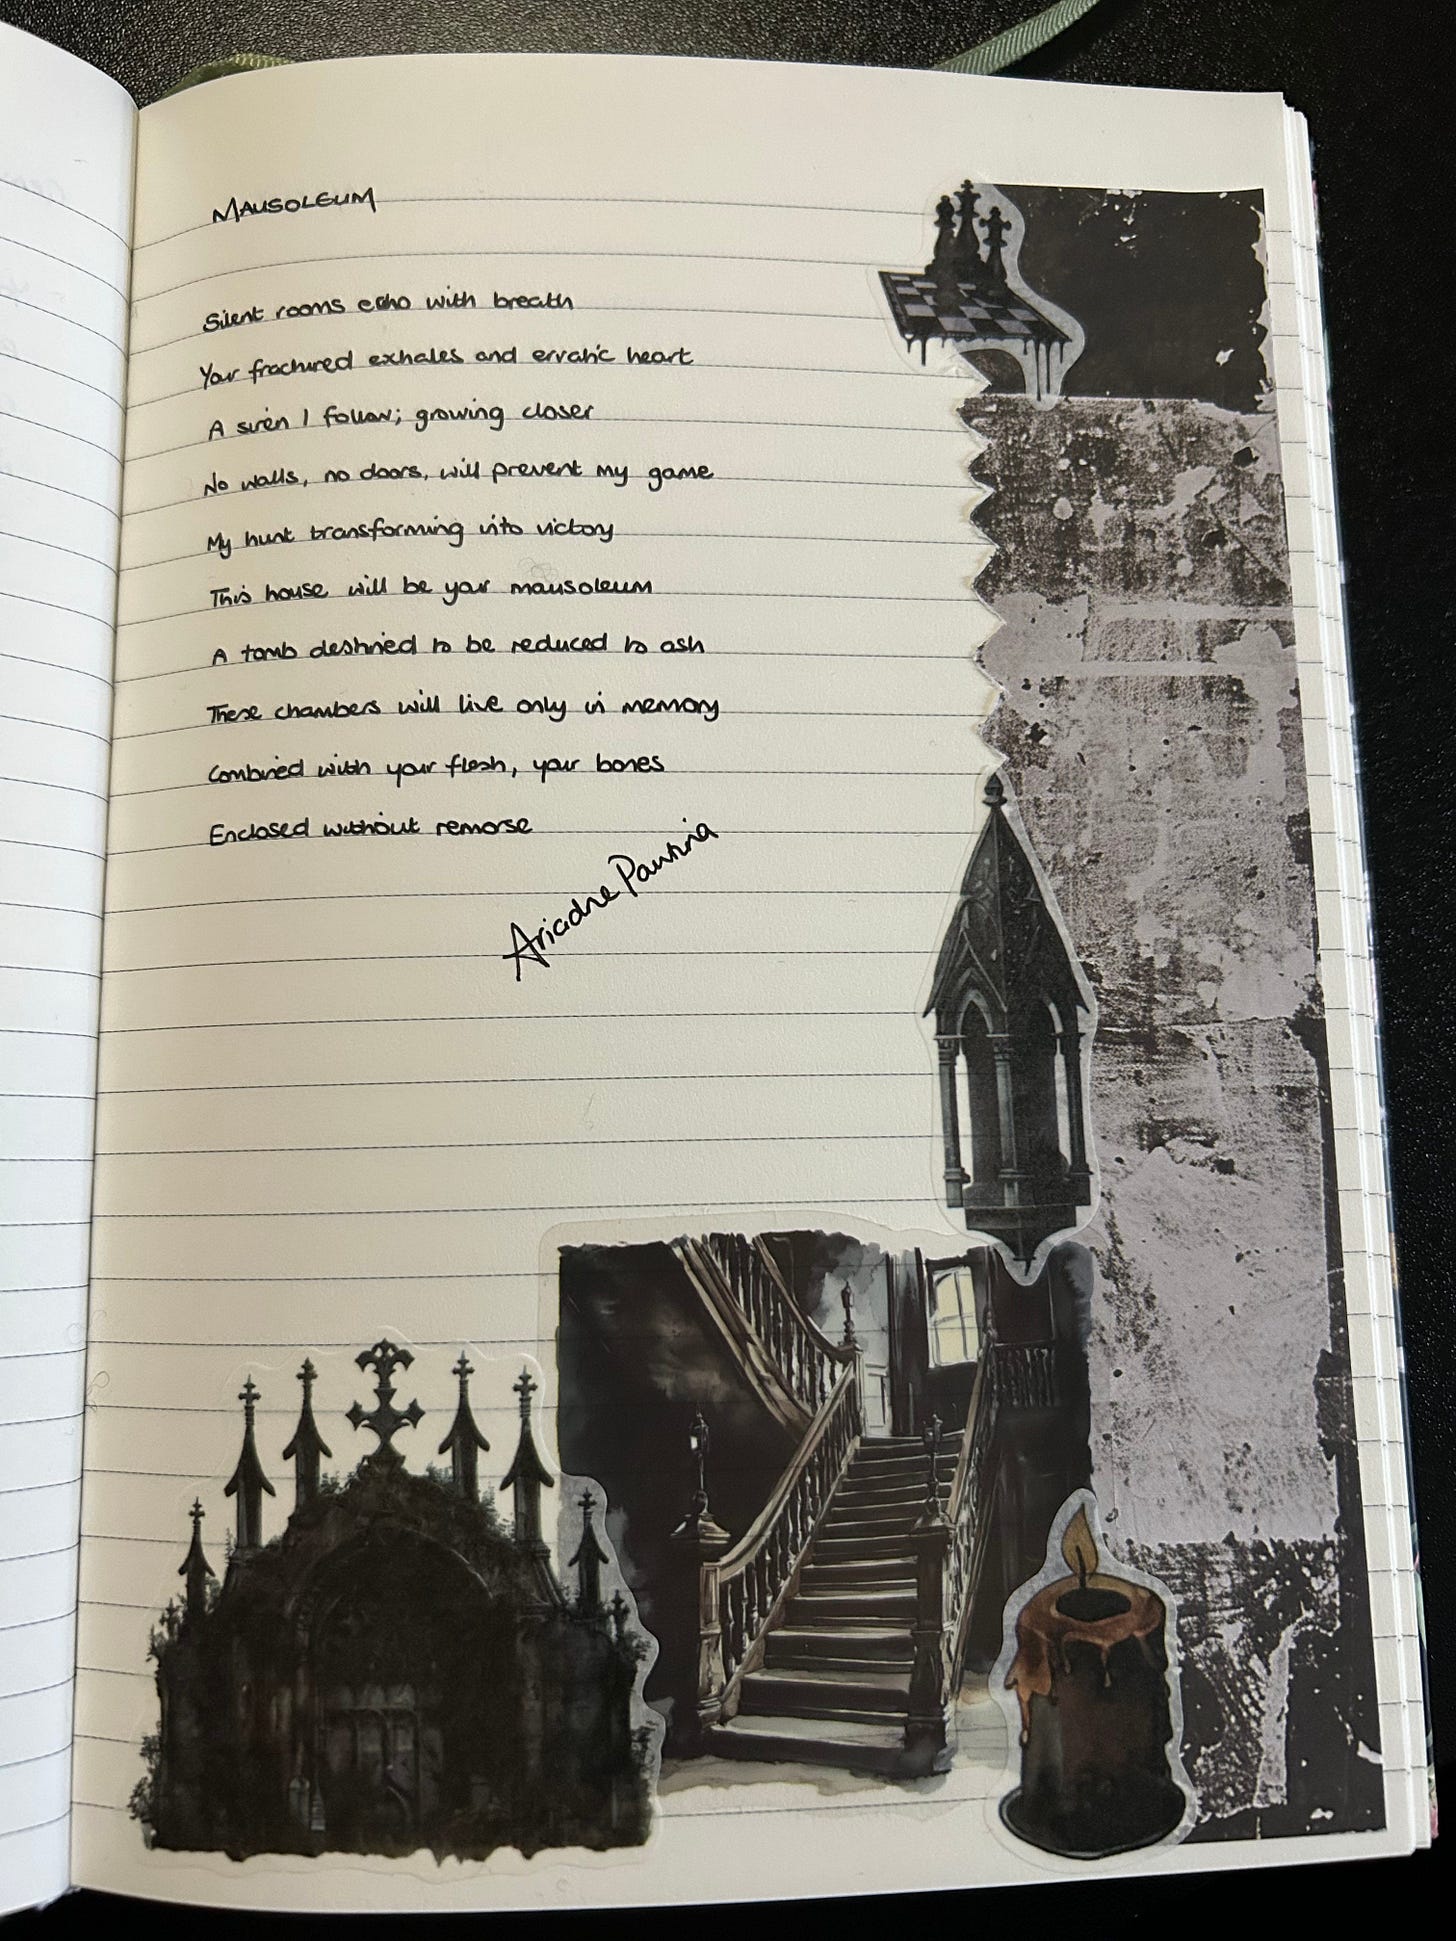 MAUSOLEUM
Silent rooms echo with breath
Your fractured exhales and erratic heart
A siren I follow; growing closer
No walls, no doors, will prevent my game
My hunt transforming into victory
This house will be your mausoleum
A tomb destined to be reduced to ash
These chambers will live only in memory
Combined with your flesh, your bones
Enclosed without remorse
Ariadne Pausina